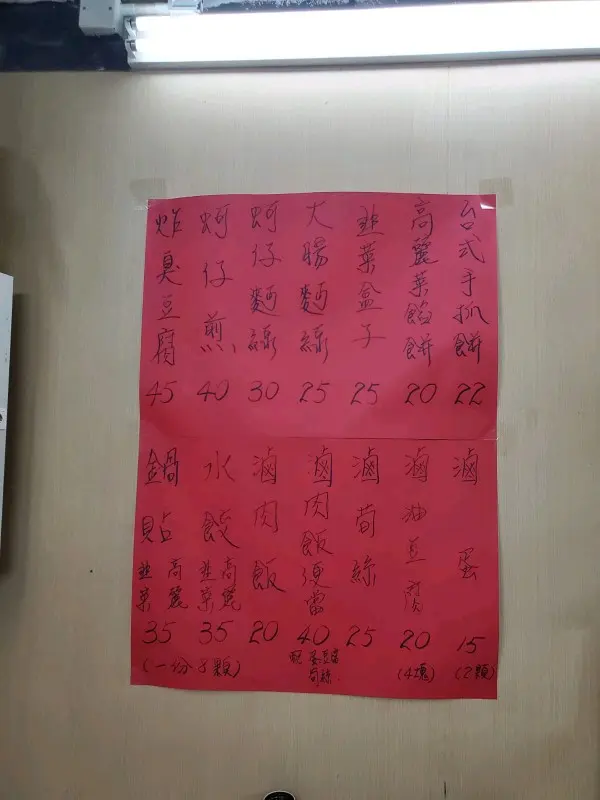 台式手抓餅 22
高麗菜餡餅 20
韮菜盒子 25
大腸麵線 25
蚵仔麵線 30
蚵仔煎 40
炸臭豆腐 45
滷蛋 15 (2顆)
滷油豆腐 20 (4塊)
滷荀絲 25
滷肉飯便當 40 配蛋豆腐荀絲
滷肉飯 20
水餃 高麗 韮菜 35
鍋貼 高麗 韮菜 35
(一份8顆)